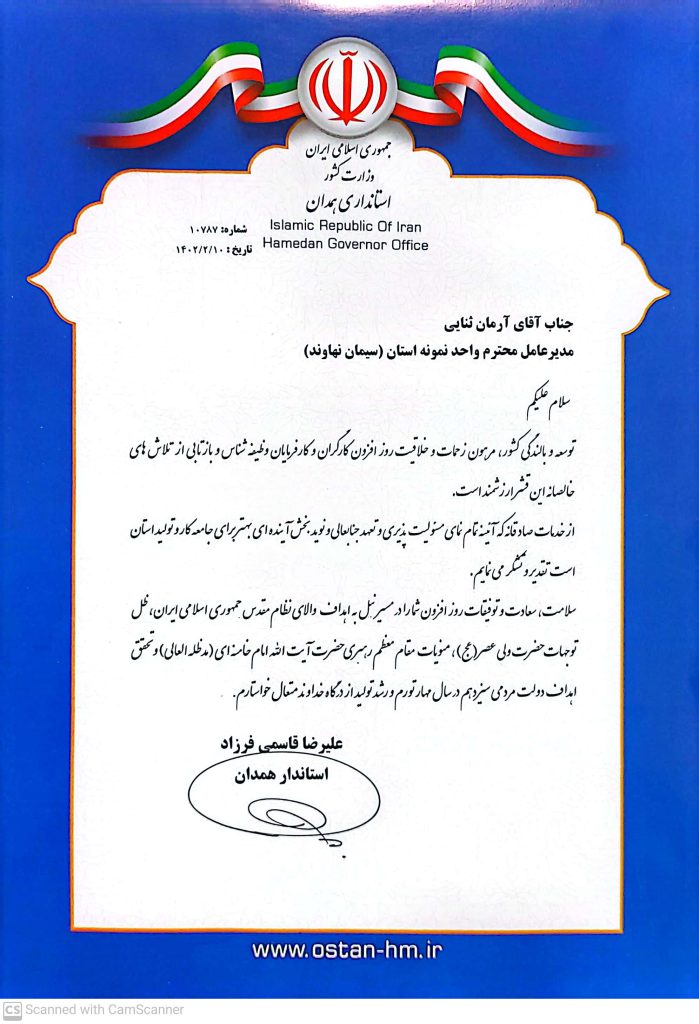 جمهوری اسلامی ایران
وزارت کشور
استانداری همدان
Islamic Republic Of Iran
Hamedan Governor Office
شماره: ۱۰۷۸۷
تاریخ: ۱۴۰۲/۲/۱۰
جناب آقای آرمان ثنایی
مدیرعامل محترم واحد نمونه استان (سیمان نهاوند)
سلام علیکم
توسعه و بالندگی کشور، مرهون زحمات و خلاقیت روز افزون کارگران و کارفرمایان وظیفه شناس و بازتابی از تلاش های
خالصانه این قشر ارزشمند است.
از خدمات صادقانه که آئینه تمام نمای مسئولیت پذیری و تعهد جنابعالی و نوید بخش آینده ای بهتر برای جامعه کار و تولید استان
است تقدیر و تشکر می نمایم.
سلامت، سعادت و توفیقات روز افزون شما را در مسیر نیل به اهداف والای نظام مقدس جمهوری اسلامی ایران، ظل
توجهات حضرت ولی عصر(عج)، منویات مقام معظم رهبری حضرت آیت الله امام خامنه ای (مدظله العالی) و تحقق
اهداف دولت مردمی سیزدهم در سال مهار تورم و رشد تولید از درگاه خداوند متعال خواستارم.
علیرضا قاسمی فرزاد
استاندار همدان
www.ostan-hm.ir
CS Scanned with CamScanner